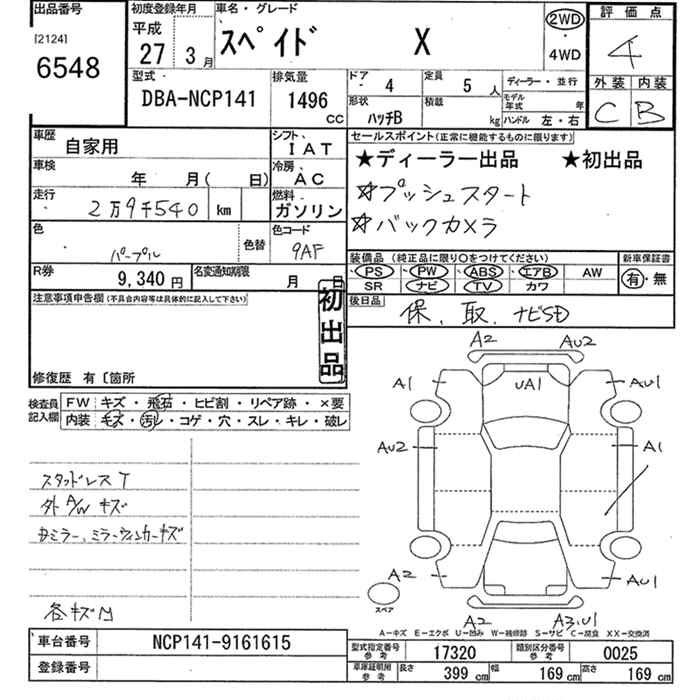 出品番号
[2124]
6548
初度登録年月
平成
27 3月
車名・グレード
スペイド X
2WD
・
4WD
評価点
4
外装 内装
C B
型式
DBA-NCP141
排気量
1496
CC
ドア
4
定員
5 人
形状
ハッチB
積載
kg
ディーラー・並行
モデル年式 年
ハンドル 左・右
車歴
自家用
シフト
IAT
車検
年 月( 日)
冷房
AC
走行
2万9千540 km
燃料
ガソリン
色
パープル
色替
色コード
9AF
R券
9,340円
名変通知期限
月 日
セールスポイント(正常に機能するものに限ります)
★ディーラー出品 ★初出品
☆プッシュスタート
☆バックカメラ
装備品 (純正品に限り○をつけてください)
PS PW ABS エアB AW
SR ナビ TV カワ
新車保証書
有・無
後日品
保、取、ナビSD
注意事項申告欄(不具合内容等は具体的に記入して下さい)
初出品
修復歴 有〔箇所
検査員
記入欄
FW キズ・飛石・ヒビ割・リペア跡・×要
内装 キズ・汚れ・コゲ・穴・スレ・キレ・破レ
スタッドレスT
外A/Wキズ
ミラー、ミラーウィンカーキズ
各キズ凹
A2 AU2
A1 UA1 AU1
AU2 A1
A2 AU1
スペア
A2 A3,U1
A-キズ E-エクボ U-凹み W-補修跡 S-サビ C-腐食 XX-交換済
車台番号
NCP141-9161615
登録番号
型式指定番号
参考
17320
類別区分番号
参考
0025
車庫証明用
参考
長さ
399 cm
幅
169 cm
高さ
169 cm